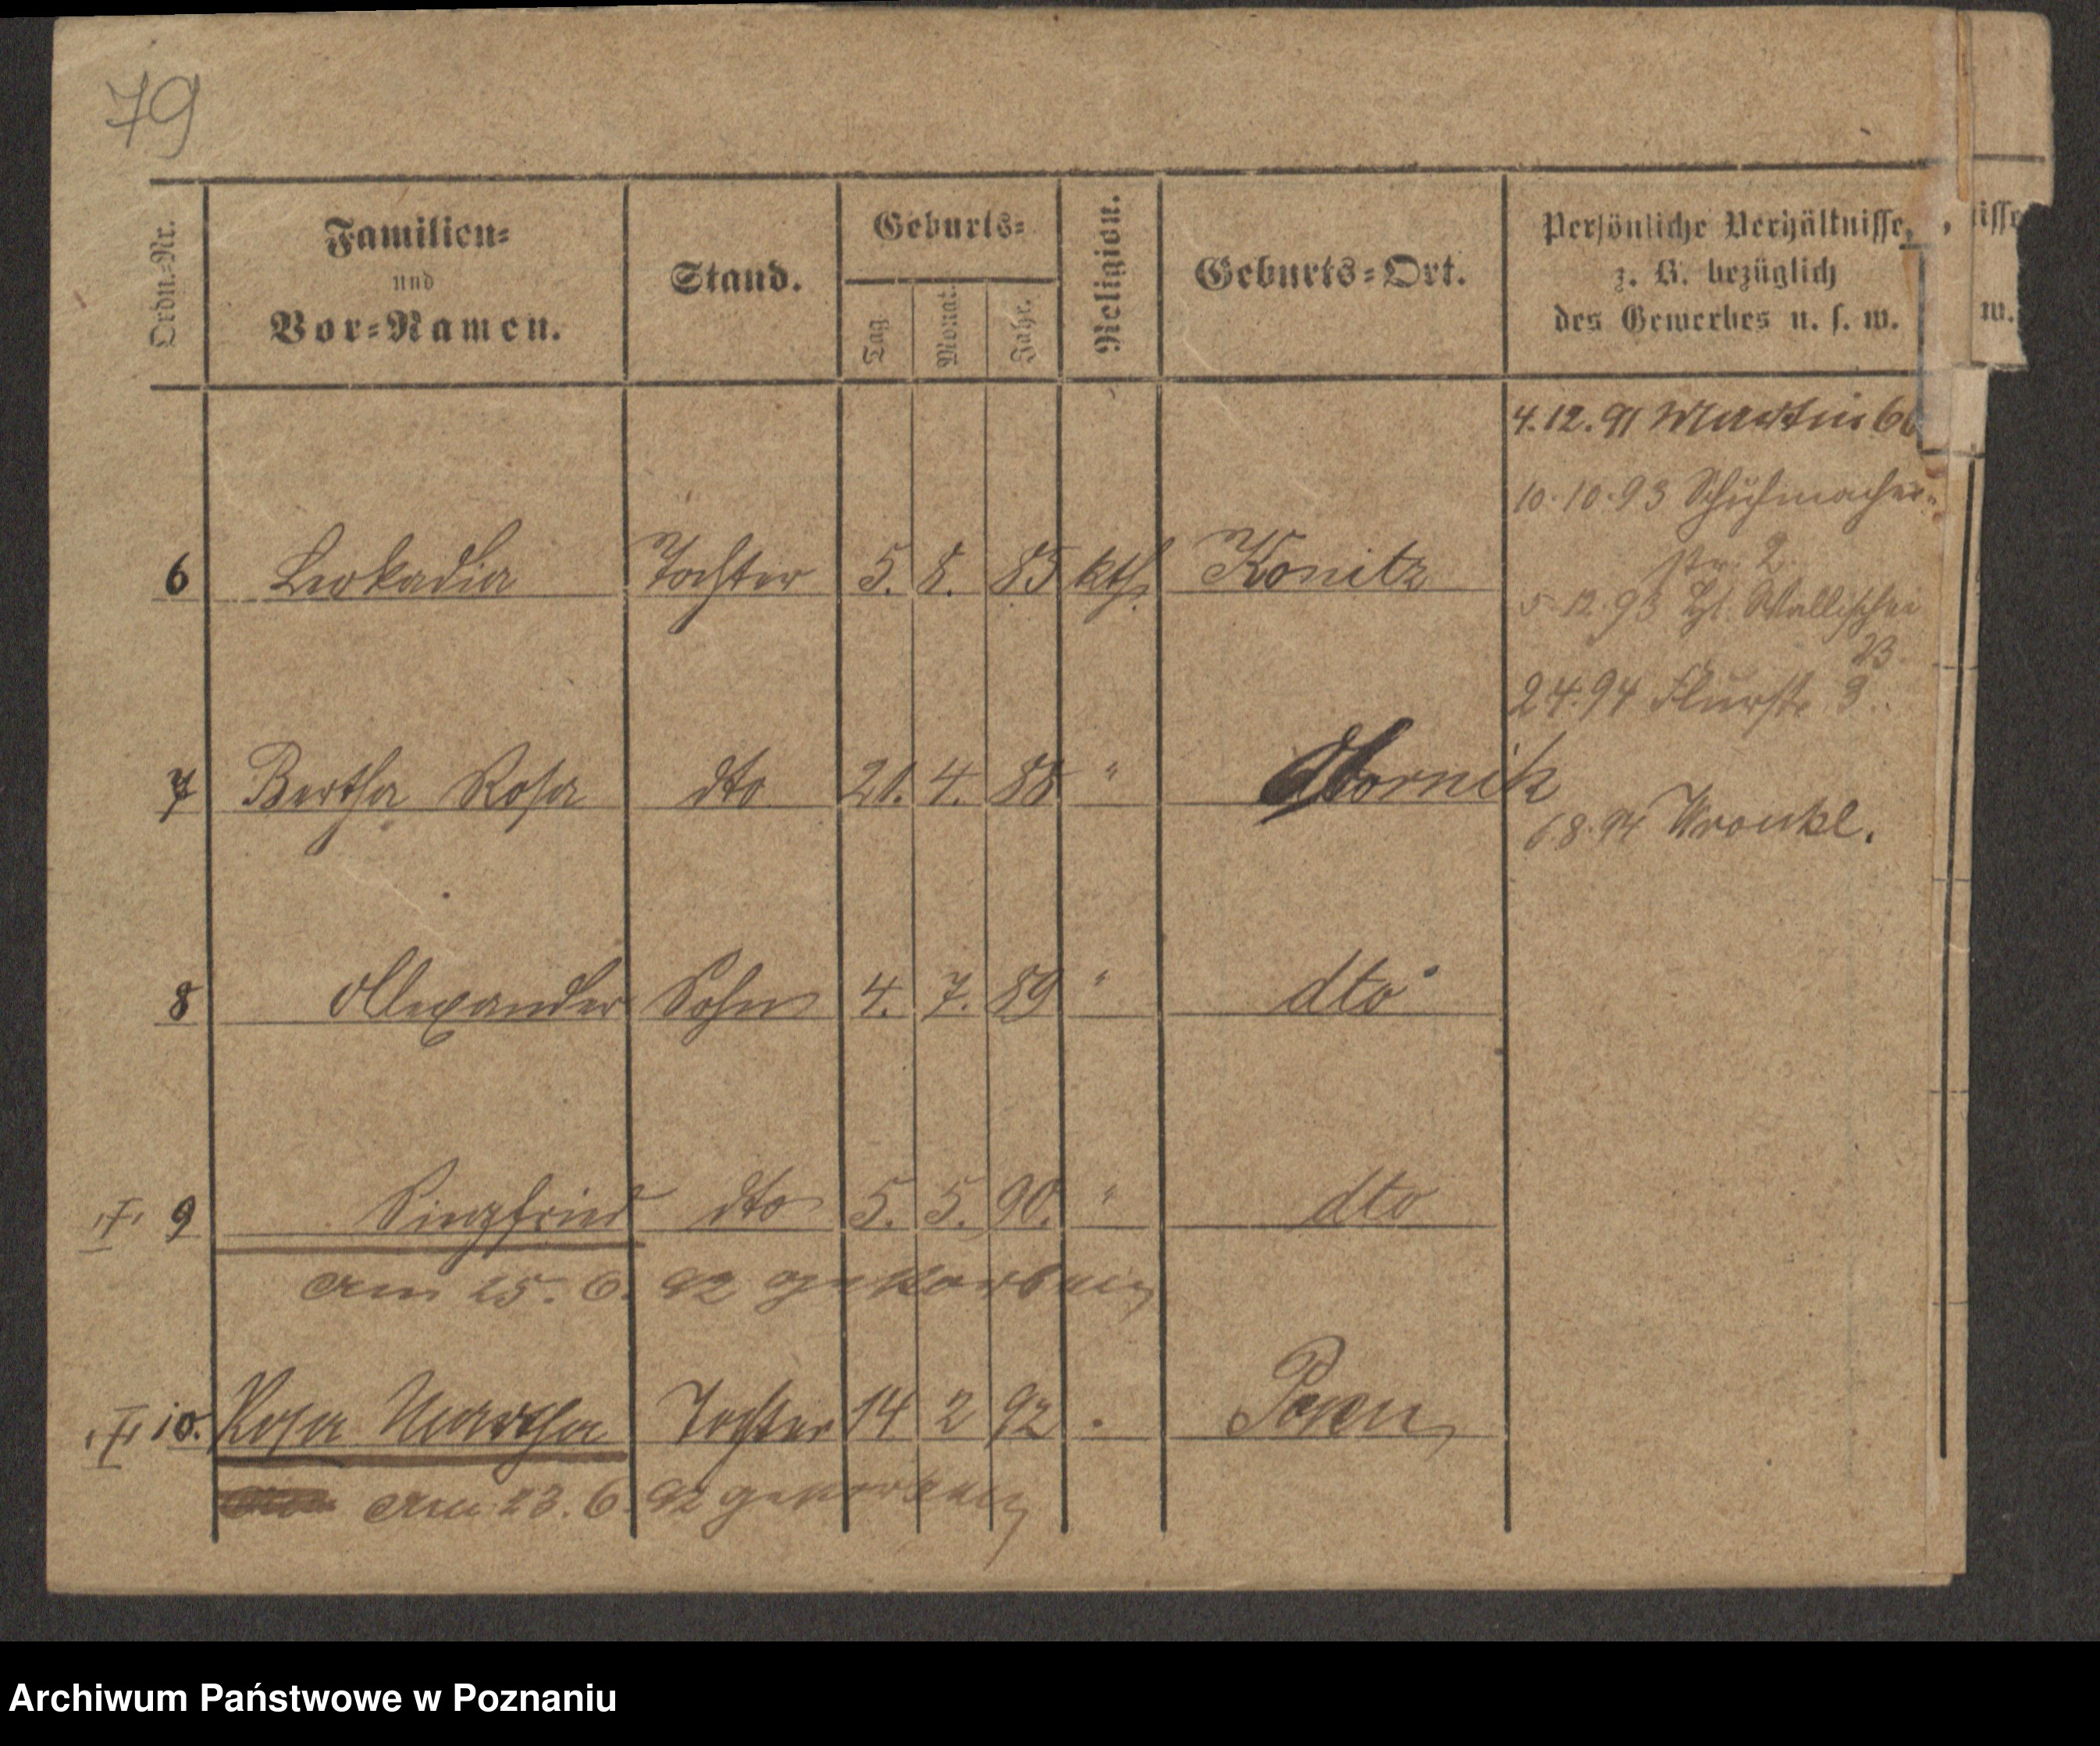 79
Ordn.-Nr.
Familien-
und
Vor-Namen.
Stand.
Geburts-
Tag
Monat.
Jahr.
Religion.
Geburts-Ort.
Persönliche Verhältnisse,
z. B. bezüglich
des Gewerbes u. s. w.
, nisse
w.
4.12.91 Martin 6
10.10.93 Schuhmacher-
str. 2
6 Leokadia Tochter 5. 8. 85 kth. Konitz
5 12.93 Wallischei
23.
2 4.94 Flurstr. 3.
7 Bertha Rosa dto 21. 4. 88 " Obornik
6 8.94 Wronkl.
8 Alexander Sohn 4. 7. 89 " dto
9 Siegfried dto 5. 5. 90. " dto
Am 25. 6. 92 gestorben
10. Rosa Martha Tochter 14 2 92 . Posen
Am 23. 6. 92 gestorben
Archiwum Państwowe w Poznaniu